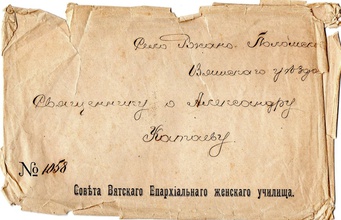 Село Вжано. Полошск
Вятскаго уѣзда
Священнику о Александру
Катаеву
№ 1058
Совѣта Вятскаго Епархіальнаго женскаго училища.